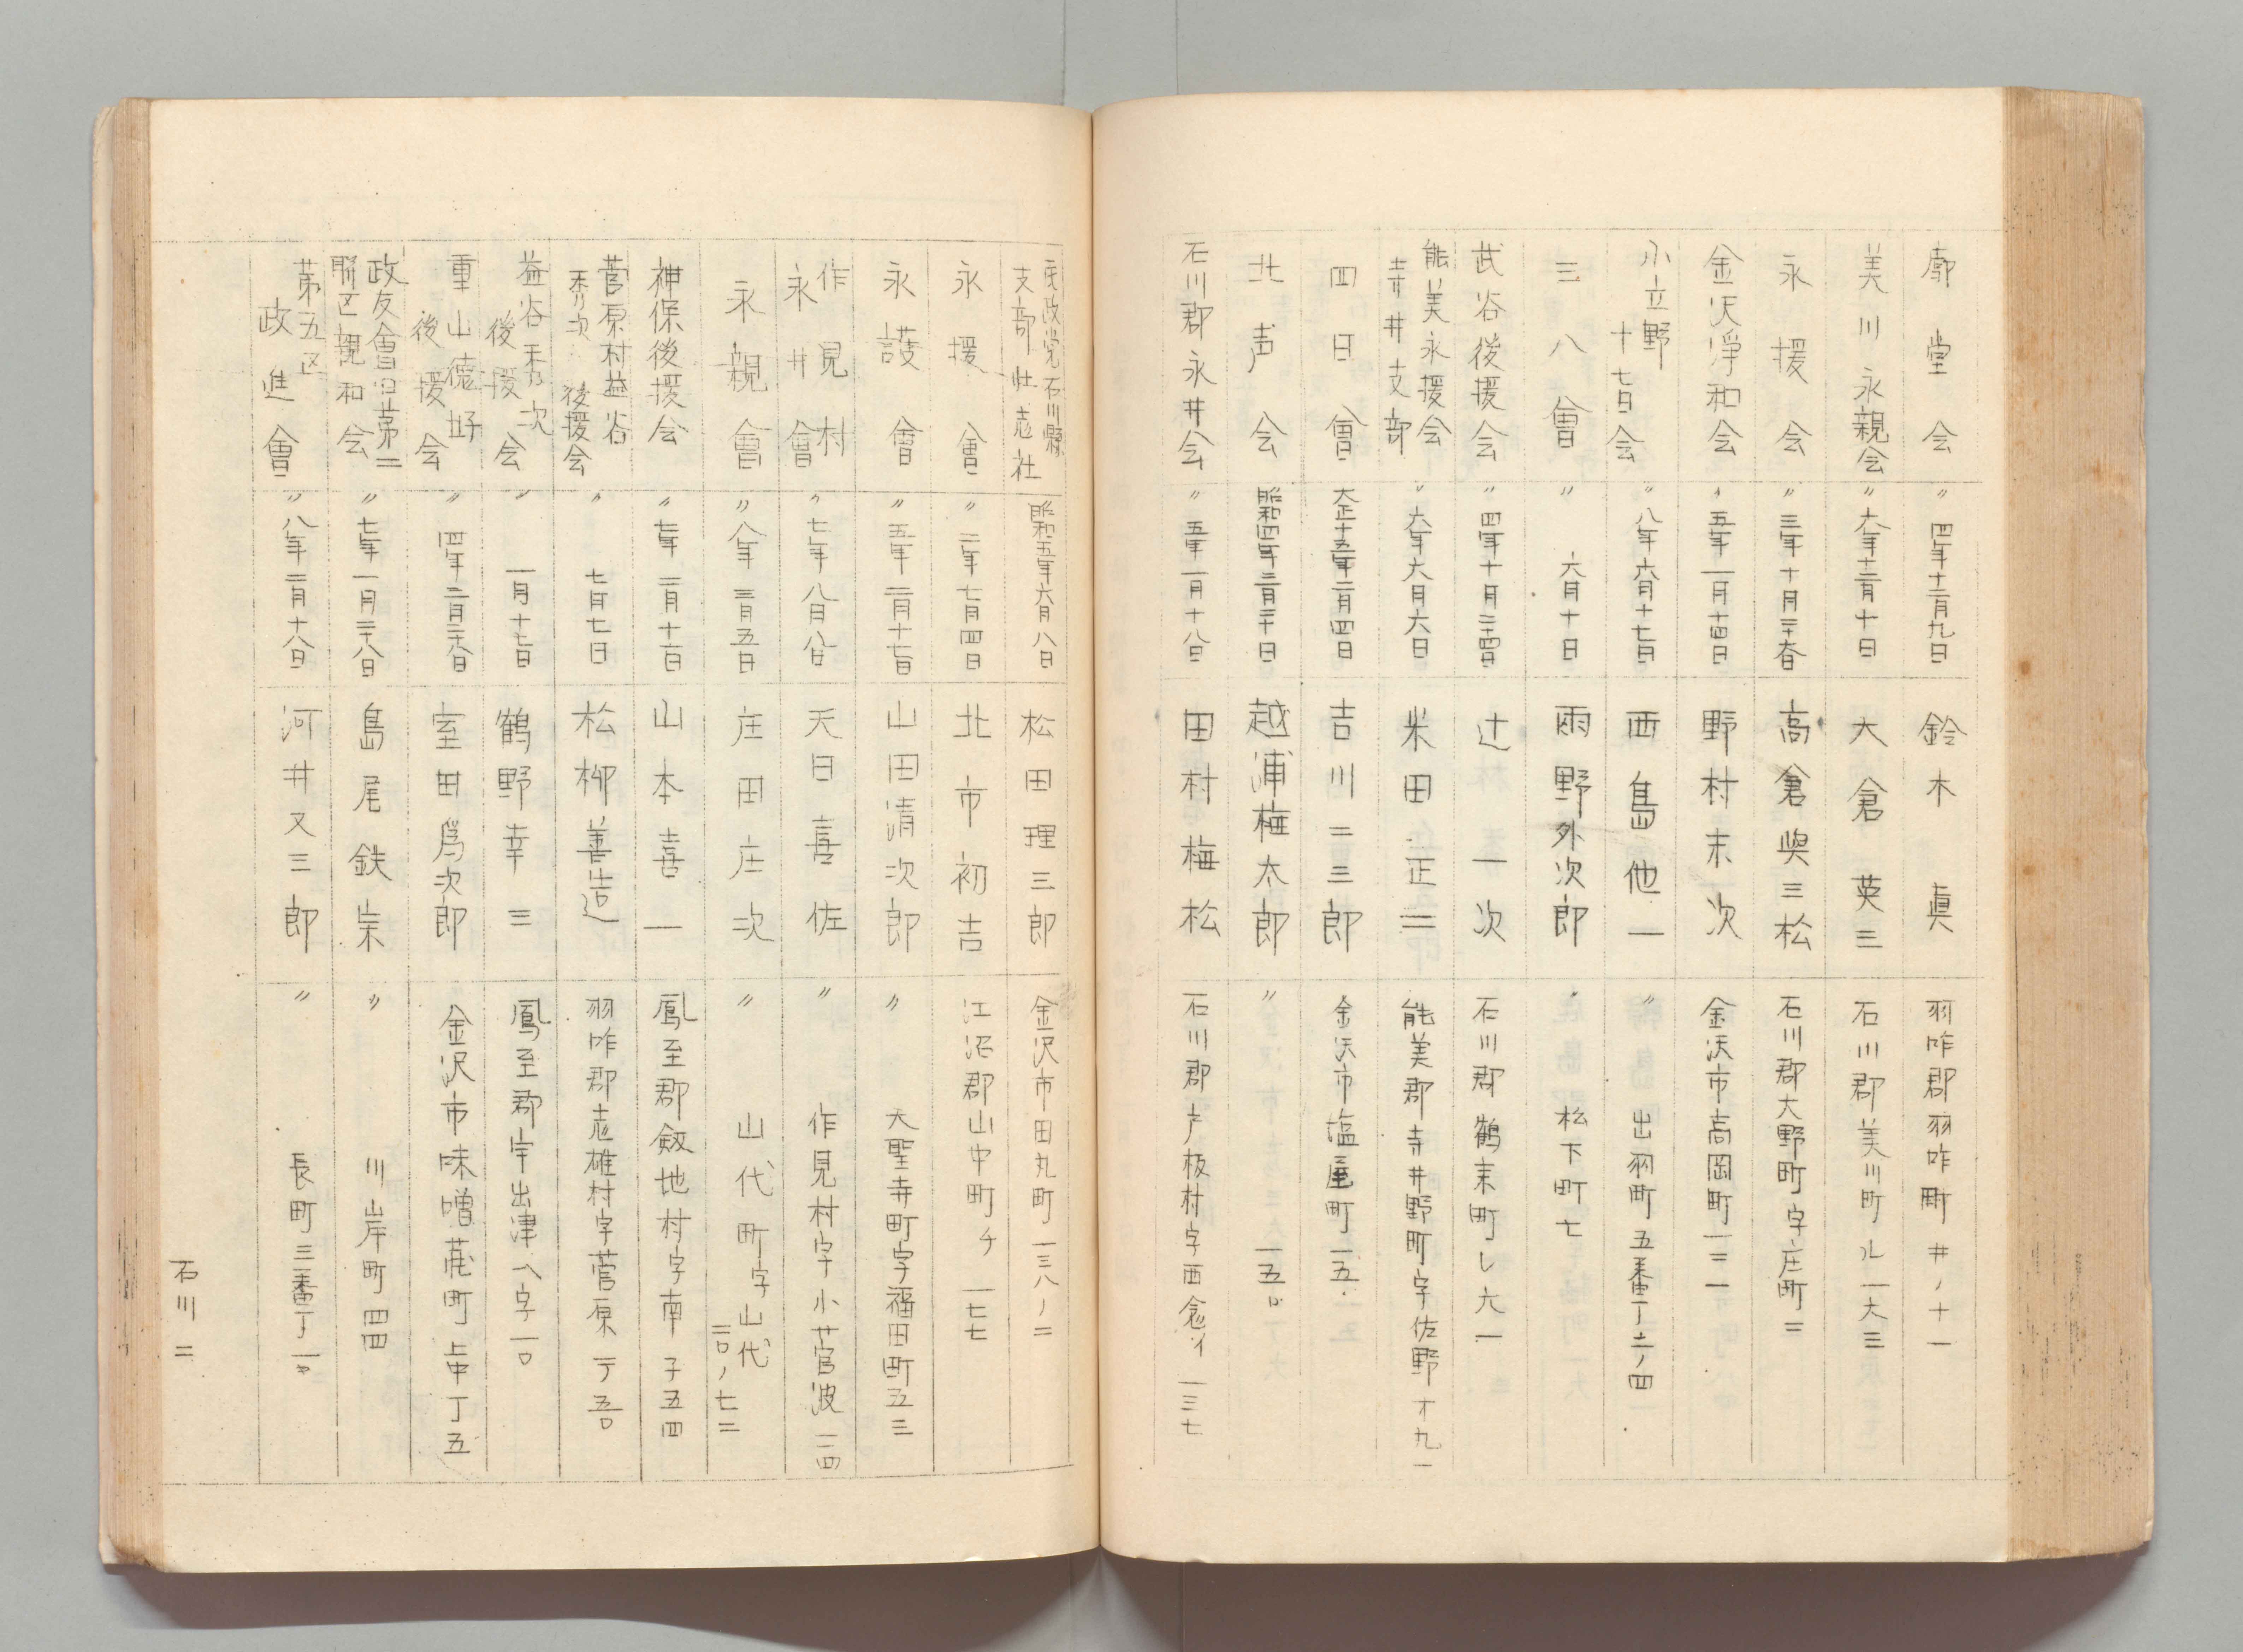 廓堂会 〃四年十二月九日 鈴木眞 羽咋郡羽咋町井ノ十一
美川永親会 〃六年十二月十日 大倉英三 石川郡美川町ル一六三
永援会 〃三年十月二十春日 高倉與三松 石川郡大野町字庄町二
金沢淨和会 〃五年一月十四日 野村末次 金沢市高岡町一三一
小立野
十七日会 〃八年六月十七日 西島他一 〃出羽町五番丁十二ノ四
三八會 〃六月十日 雨野外次郎 〃松下町七
武谷後援会 〃四年十月二十四日 辻一次 石川郡鶴来町レ六一
能美永援会
寺井支部 〃六年六月六日 米田正二 能美郡寺井野町字佐野オ九一
四日會 大正十五年二月四日 吉川二三郎 金沢市塩屋町一五
北声会 昭和四年二月二十日 越浦梅太郎 〃一五〇
石川郡永井会 〃五年一月十八日 田村梅松 石川郡戸板村字西念イ一三七
民政党石川縣
支部壮志社 昭和五年六月八日 松田理三郎 金沢市田丸町一三八ノ二
永援會 〃二年七月四日 北市初吉 江沼郡山中町チ一七七
永護會 〃五年二月十七日 山田清次郎 〃大聖寺町字福田町五三
作見村
永井會 〃七年八月八日 天日喜佐 〃作見村字小菅波一四
永親會 〃八年三月五日 庄田庄次 〃山代町字山代
二〇ノ七二
神保後援会 〃七年二月十一日 山本喜一 鳳至郡劔地村字南子五四
菅原村益谷
秀次後援会 〃七月七日 松柳善造 羽咋郡志雄村字菅原一丁五〇
益谷秀次
後援会 〃一月十七日 鶴野幸三 鳳至郡宇出津八字一〇
重山徳好
後援会 〃四年二月二十八日 室田爲次郎 金沢市味噌蔵町上中丁五
政友會旧第二
聯区親和会 〃七年一月二十八日 島尾鉄宗 〃川岸町四四
第五区
政進會 〃八年二月十八日 河井又三郎 〃長町三番丁一〇
石川二